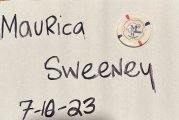 Maurica
Sweeney
7-18-23